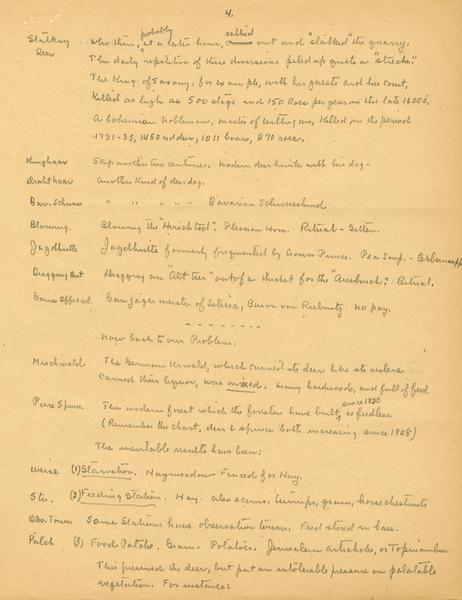 4.
Stalking who then, probably at a later hour, sallied out and "stalked" the quarry.
Deer The daily repetition of these diversions piled up quite a "strecke".
The King of Saxony, for example, with his guests and his court,
killed as high as 500 stags and 150 Roes per year in the late 1600s.
A bohemian nobleman, master of hunting, killed in the period
1731-35, 1450 red deer, 1011 boars, 270 roes.
Skip another two centuries. Modern deer hunter with his dog-
Drahthaar Another kind of deer dog.
Bav. Schweiss " " " " " Bavarian Schweisshund
Blowing. Blowing the "Hirsch tod". Plessman Horn. Ritual - Sitten.
Jagdhutte Jagdhutte formerly frequented by Crown Prince. Pea Soup. - Erbsensuppe
Dragging out Dragging an "Alt tier" out of a thicket for the "Aufbruch". Ritual.
Game official. Gaujägermeister of Silesia, Baron von Reibnitz. no pay.
- - - - - - -
Now back to our Problem.
Mischwald The German Urwald, which carried its deer like its rulers
carried their liquor, was mixed. Many hardwoods, and full of feed.
Pure Spruce. The modern forest which the foresters have built since 1820, is feedless.
(Remember the chart, deer & spruce both increasing since 1848)
The inevitable results have been:
Wiese (1) Starvation. Haymeadow - Fenced for Hay.
Sta. (2) Feeding Station. Hay. also acorns, turnips, grain, horse chestnuts
Obs. Tower Some Stations have observation towers. Feed stored in base.
Patch (3) Food Patch. Grain - Potatoes. Jerusalem artichoke, or Topinambur.
This preserved the deer, but put an intolerable pressure on palatable
vegetation. For instance: